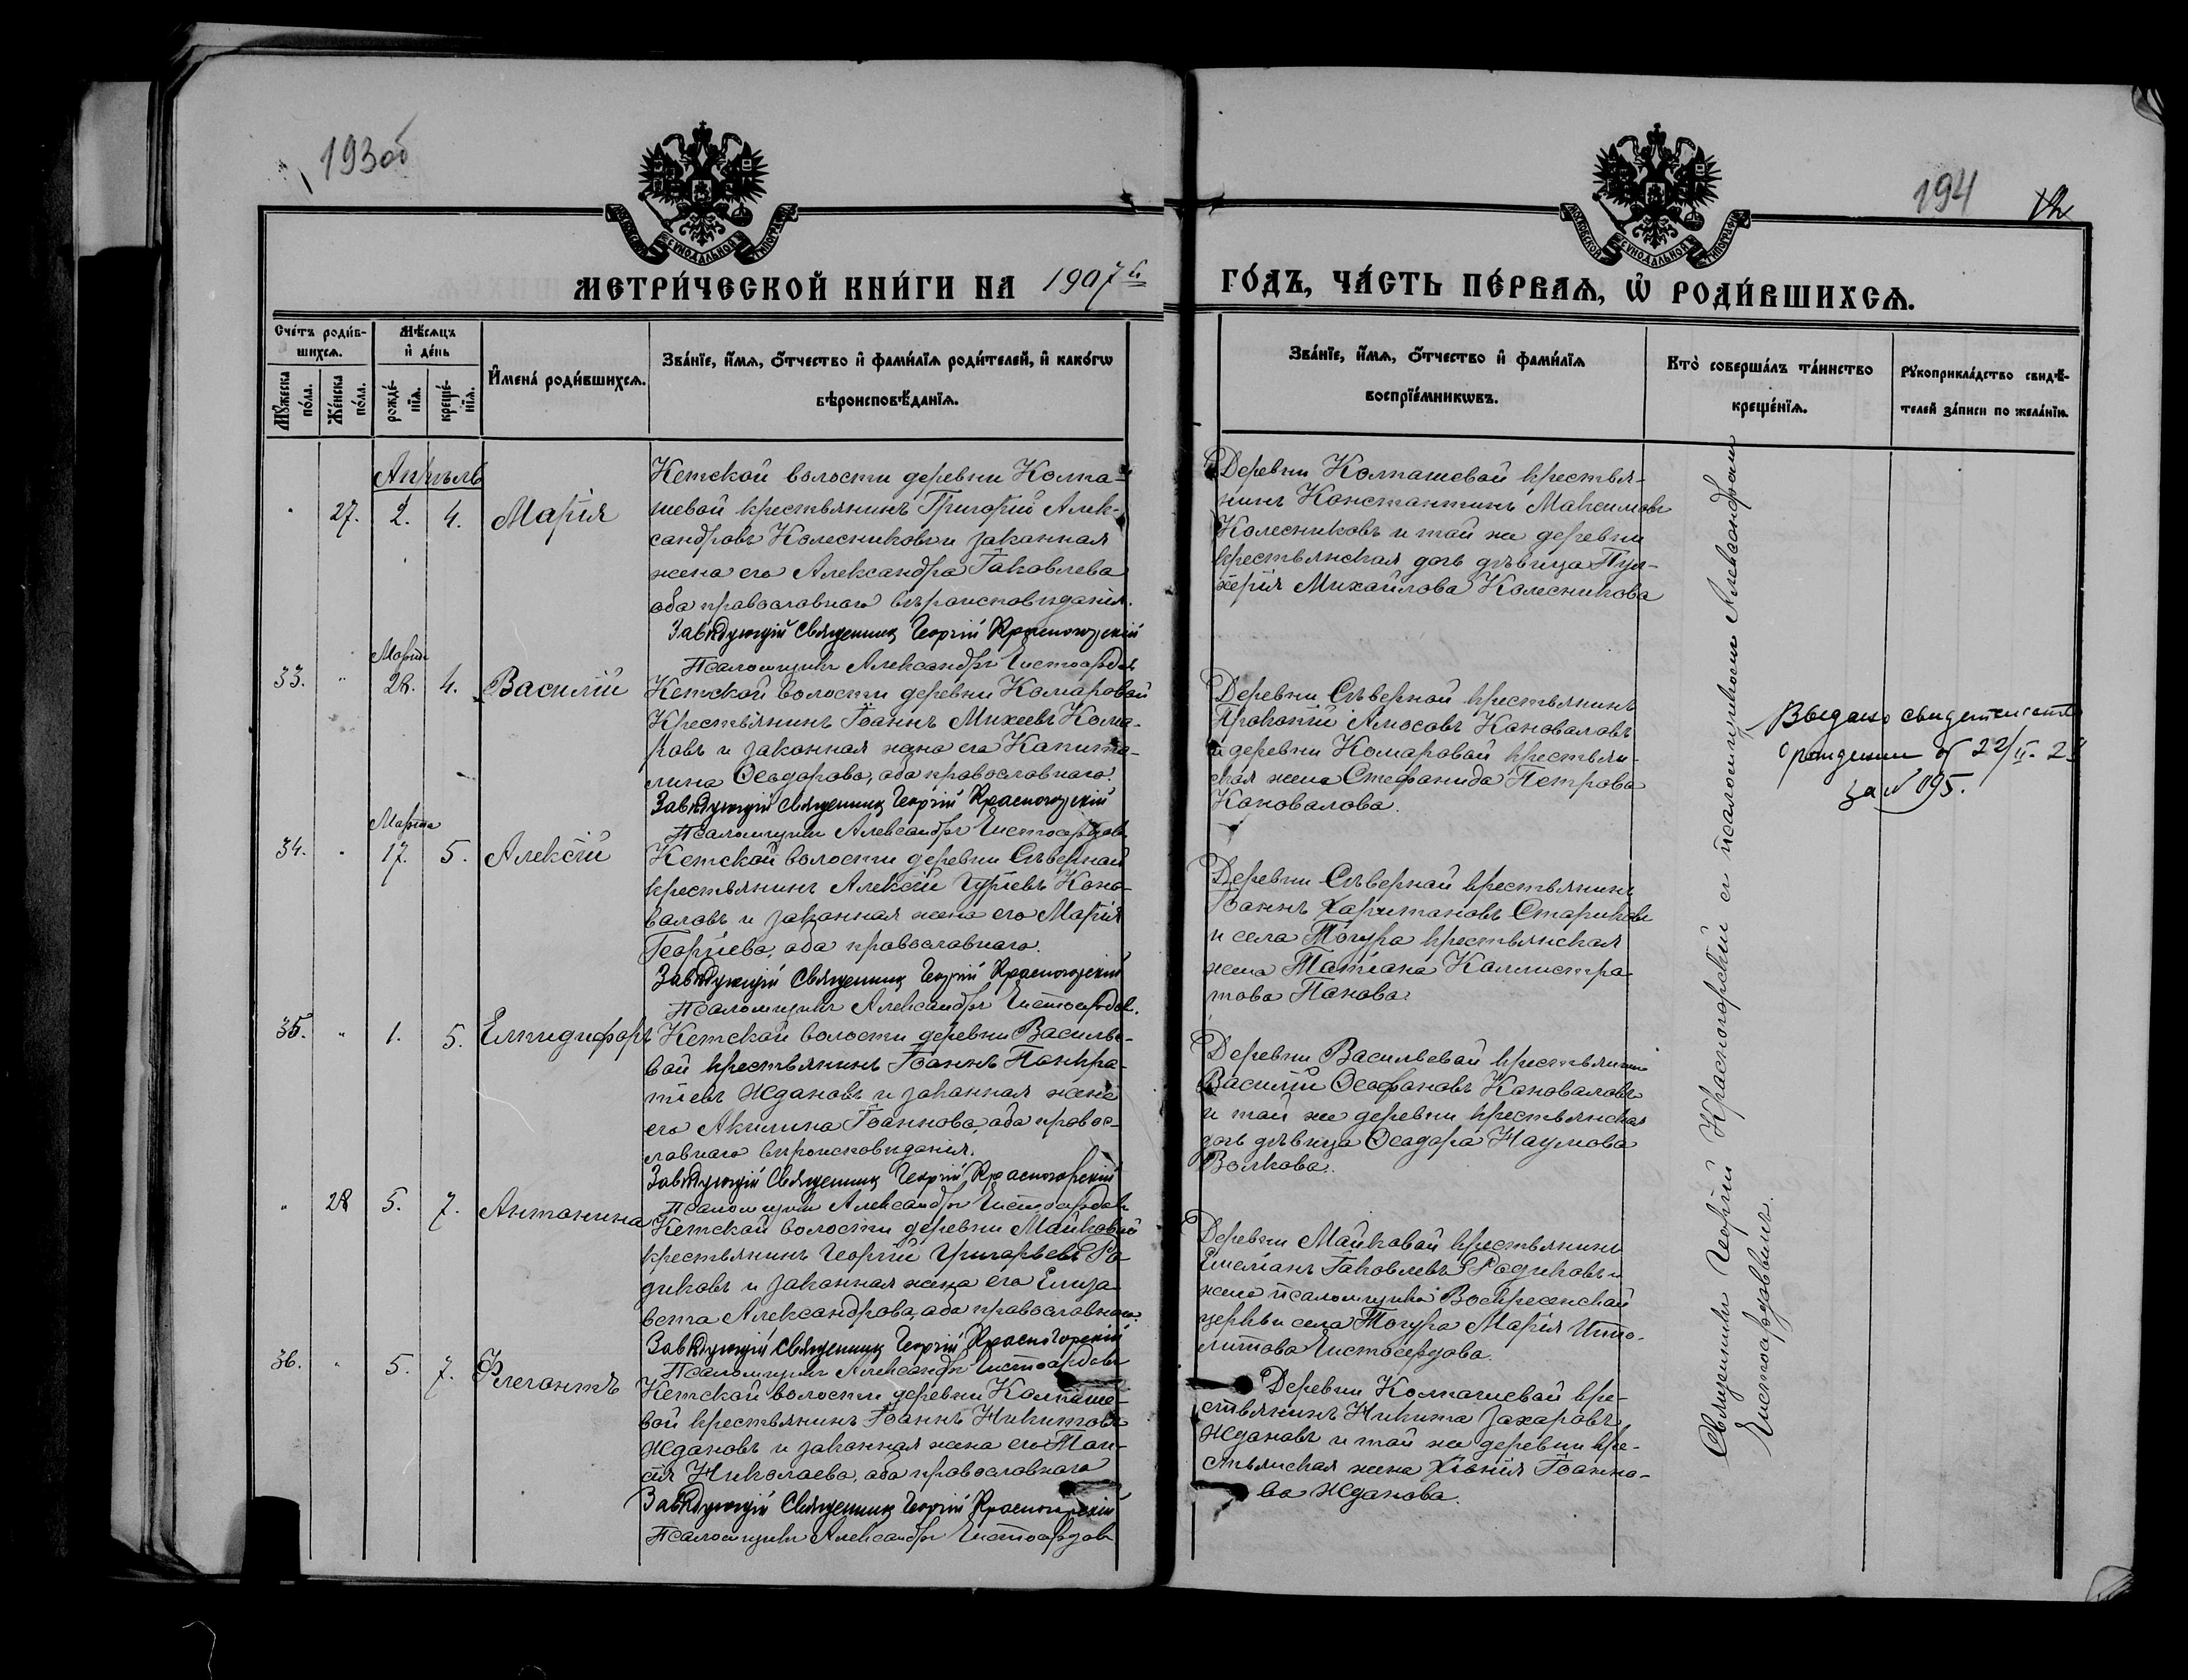 193 об
194
МОСКОВСКОЙ СѴНОДАЛЬНОЙ ТИПОГРАФІИ
МОСКОВСКОЙ СѴНОДАЛЬНОЙ ТИПОГРАФІИ
МЕТРИ́ЧЕСКОЙ КНИ́ГИ НА 1907 й
ГО́ДЪ, ЧА́СТЬ ПЕ́РВАѦ, Ѡ҆ РОДИ́ВШИХСѦ.
Сче́тъ роди́в-
шихсѧ.
Мѣ́сѧцъ
и҆ де́нь
Мꙋ́жеска
по́ла.
Же́нска
по́ла.
рожде́-
нїѧ.
креще́-
нїѧ.
И҆мена́ роди́вшихсѧ.
Зва́нїе, и҆́мѧ, ѻ҆́тчество и҆ фами́лїѧ роди́телей, и҆ како́гѡ
вѣроисповѣ́данїѧ.
Зва́нїе, и҆́мѧ, ѻ҆́тчество и҆ фами́лїѧ
воспрїе́мникѡвъ.
Кто̀ соверша́лъ та́инство
креще́нїѧ.
Рꙋкоприкла́дство свидѣ́-
телей за́писи по жела́нїю.
Апрѣль
27. 2. 4. Марія
Кетской волости деревни Колпа-
шевой крестьянинъ Григорій Алек-
сандровъ Колесниковъ и законная
жена его Александра Іаковлева
оба православнаго вѣроисповѣданія.
Завѣдующій Священникъ Георгій Красногорскій
Псаломщикъ Александръ Чистосердовъ
Деревни Колпашевой крестья-
нинъ Константинъ Максимовъ
Колесниковъ и той же деревни
крестьянская дочь дѣвица Пул-
херія Михайлова Колесникова
Марта
33. " 28. 4. Василій
Кетской волости деревни Комаровой
Крестьянинъ Іоаннъ Михеевъ Кома-
ровъ и законная жена его Капито-
лина Ѳеодорова, оба православнаго.
Завѣдующій Священникъ Георгій Красногорскій
Псаломщикъ Александръ Чистосердовъ
Деревни Сѣверной крестьянинъ
Прокопій Амосовъ Коноваловъ
и деревни Комаровой крестьян-
ская жена Стефанида Петрова
Коновалова.
Выдано свидетельство
о рождении от 22/II-
за № 195.
Марта
34. " 17. 5. Алексій
Кетской волости деревни Сѣверной
крестьянинъ Алексій Гуріевъ Коно-
валовъ и законная жена его Марія
Георгіева, оба православнаго.
Завѣдующій Священникъ Георгій Красногорскій
Псаломщикъ Александръ Чистосердовъ.
Деревни Сѣверной крестьянинъ
Іоаннъ Харитоновъ Стариковъ
и села Тогура крестьянская
жена Татіана Каллистра-
това Панова.
35. " 1. 5. Елпидифоръ
Кетской волости деревни Василье-
вой крестьянинъ Іоаннъ Панкра-
тіевъ Ждановъ и законная жена
его Акилина Іоаннова, оба правос-
лавнаго вѣроисповѣданія.
Завѣдующій Священникъ Георгій Красногорскій
Псаломщикъ Александръ Чистосердовъ
Деревни Васильевой крестьянинъ
Василій Ѳеофановъ Коноваловъ
и той же деревни крестьянская
дочь дѣвица Ѳеодора Наумова
Волкова.
" 28 5. 7. Антонина
Кетской волости деревни Майковой
крестьянинъ Георгій Григорьевъ Ро-
диковъ и законная жена его Елиза-
вета Александрова, оба православнаго.
Завѣдующій Священникъ Георгій Красногорскій
Псаломщикъ Александръ Чистосердовъ
Деревни Майковой крестьянинъ
Емеліанъ Іаковлевъ Родиковъ и
жена псаломщика Воскресенской
церкви села Тогура Марія Иппо-
литова Чистосердова.
36. " 5. 7. Флегонтъ
Кетской волости деревни Колпаше-
вой крестьянинъ Іоаннъ Никитовъ
Ждановъ и законная жена его Таи-
сія Николаева, оба православнаго
Завѣдующій Священникъ Георгій Красногорскій
Псаломщикъ Александръ Чистосердовъ
Деревни Колпашевой кре-
стьянинъ Никита Захаровъ
Ждановъ и той же деревни кре-
стьянская жена Хіонія Іоанно-
ва Жданова.
Священникъ Георгій Красногорскій съ псаломщикомъ Александромъ
Чистосердовымъ.